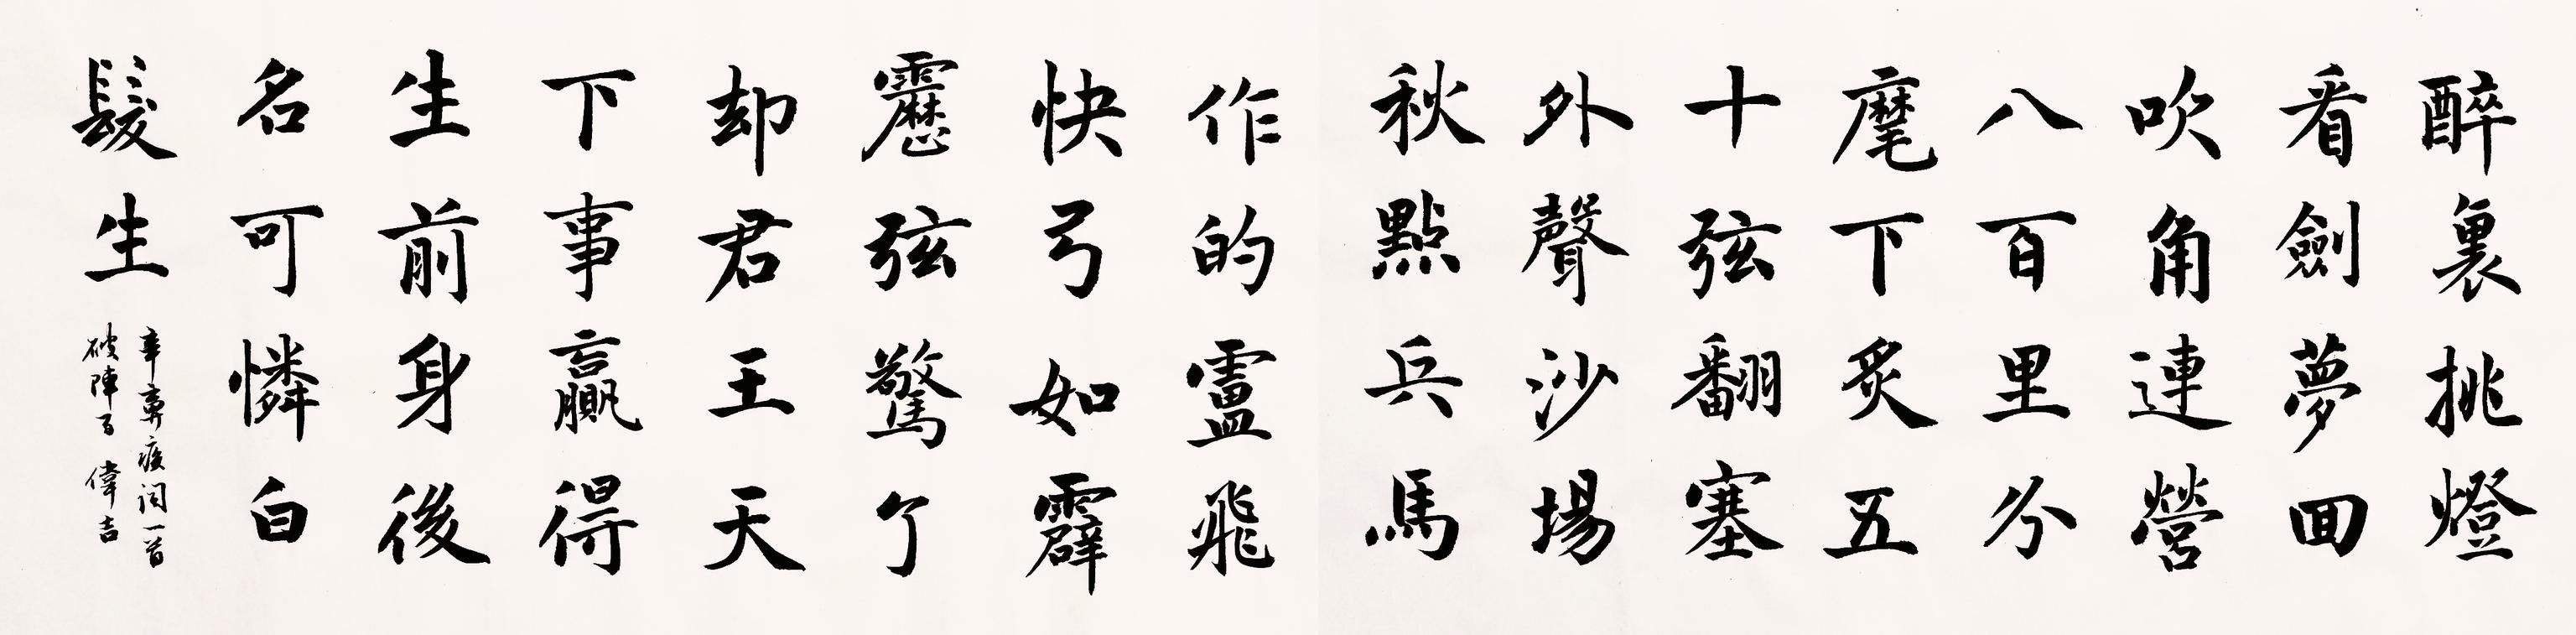 醉裏挑燈
看劍夢回
吹角連營
八百里分
麾下炙五
十弦翻塞
外聲沙場
秋點兵馬
作的盧飛
快弓如霹
靂弦驚了
却君王天
下事贏得
生前身後
名可憐白
髮生
辛棄疾詞一首
破陣子 偉吉